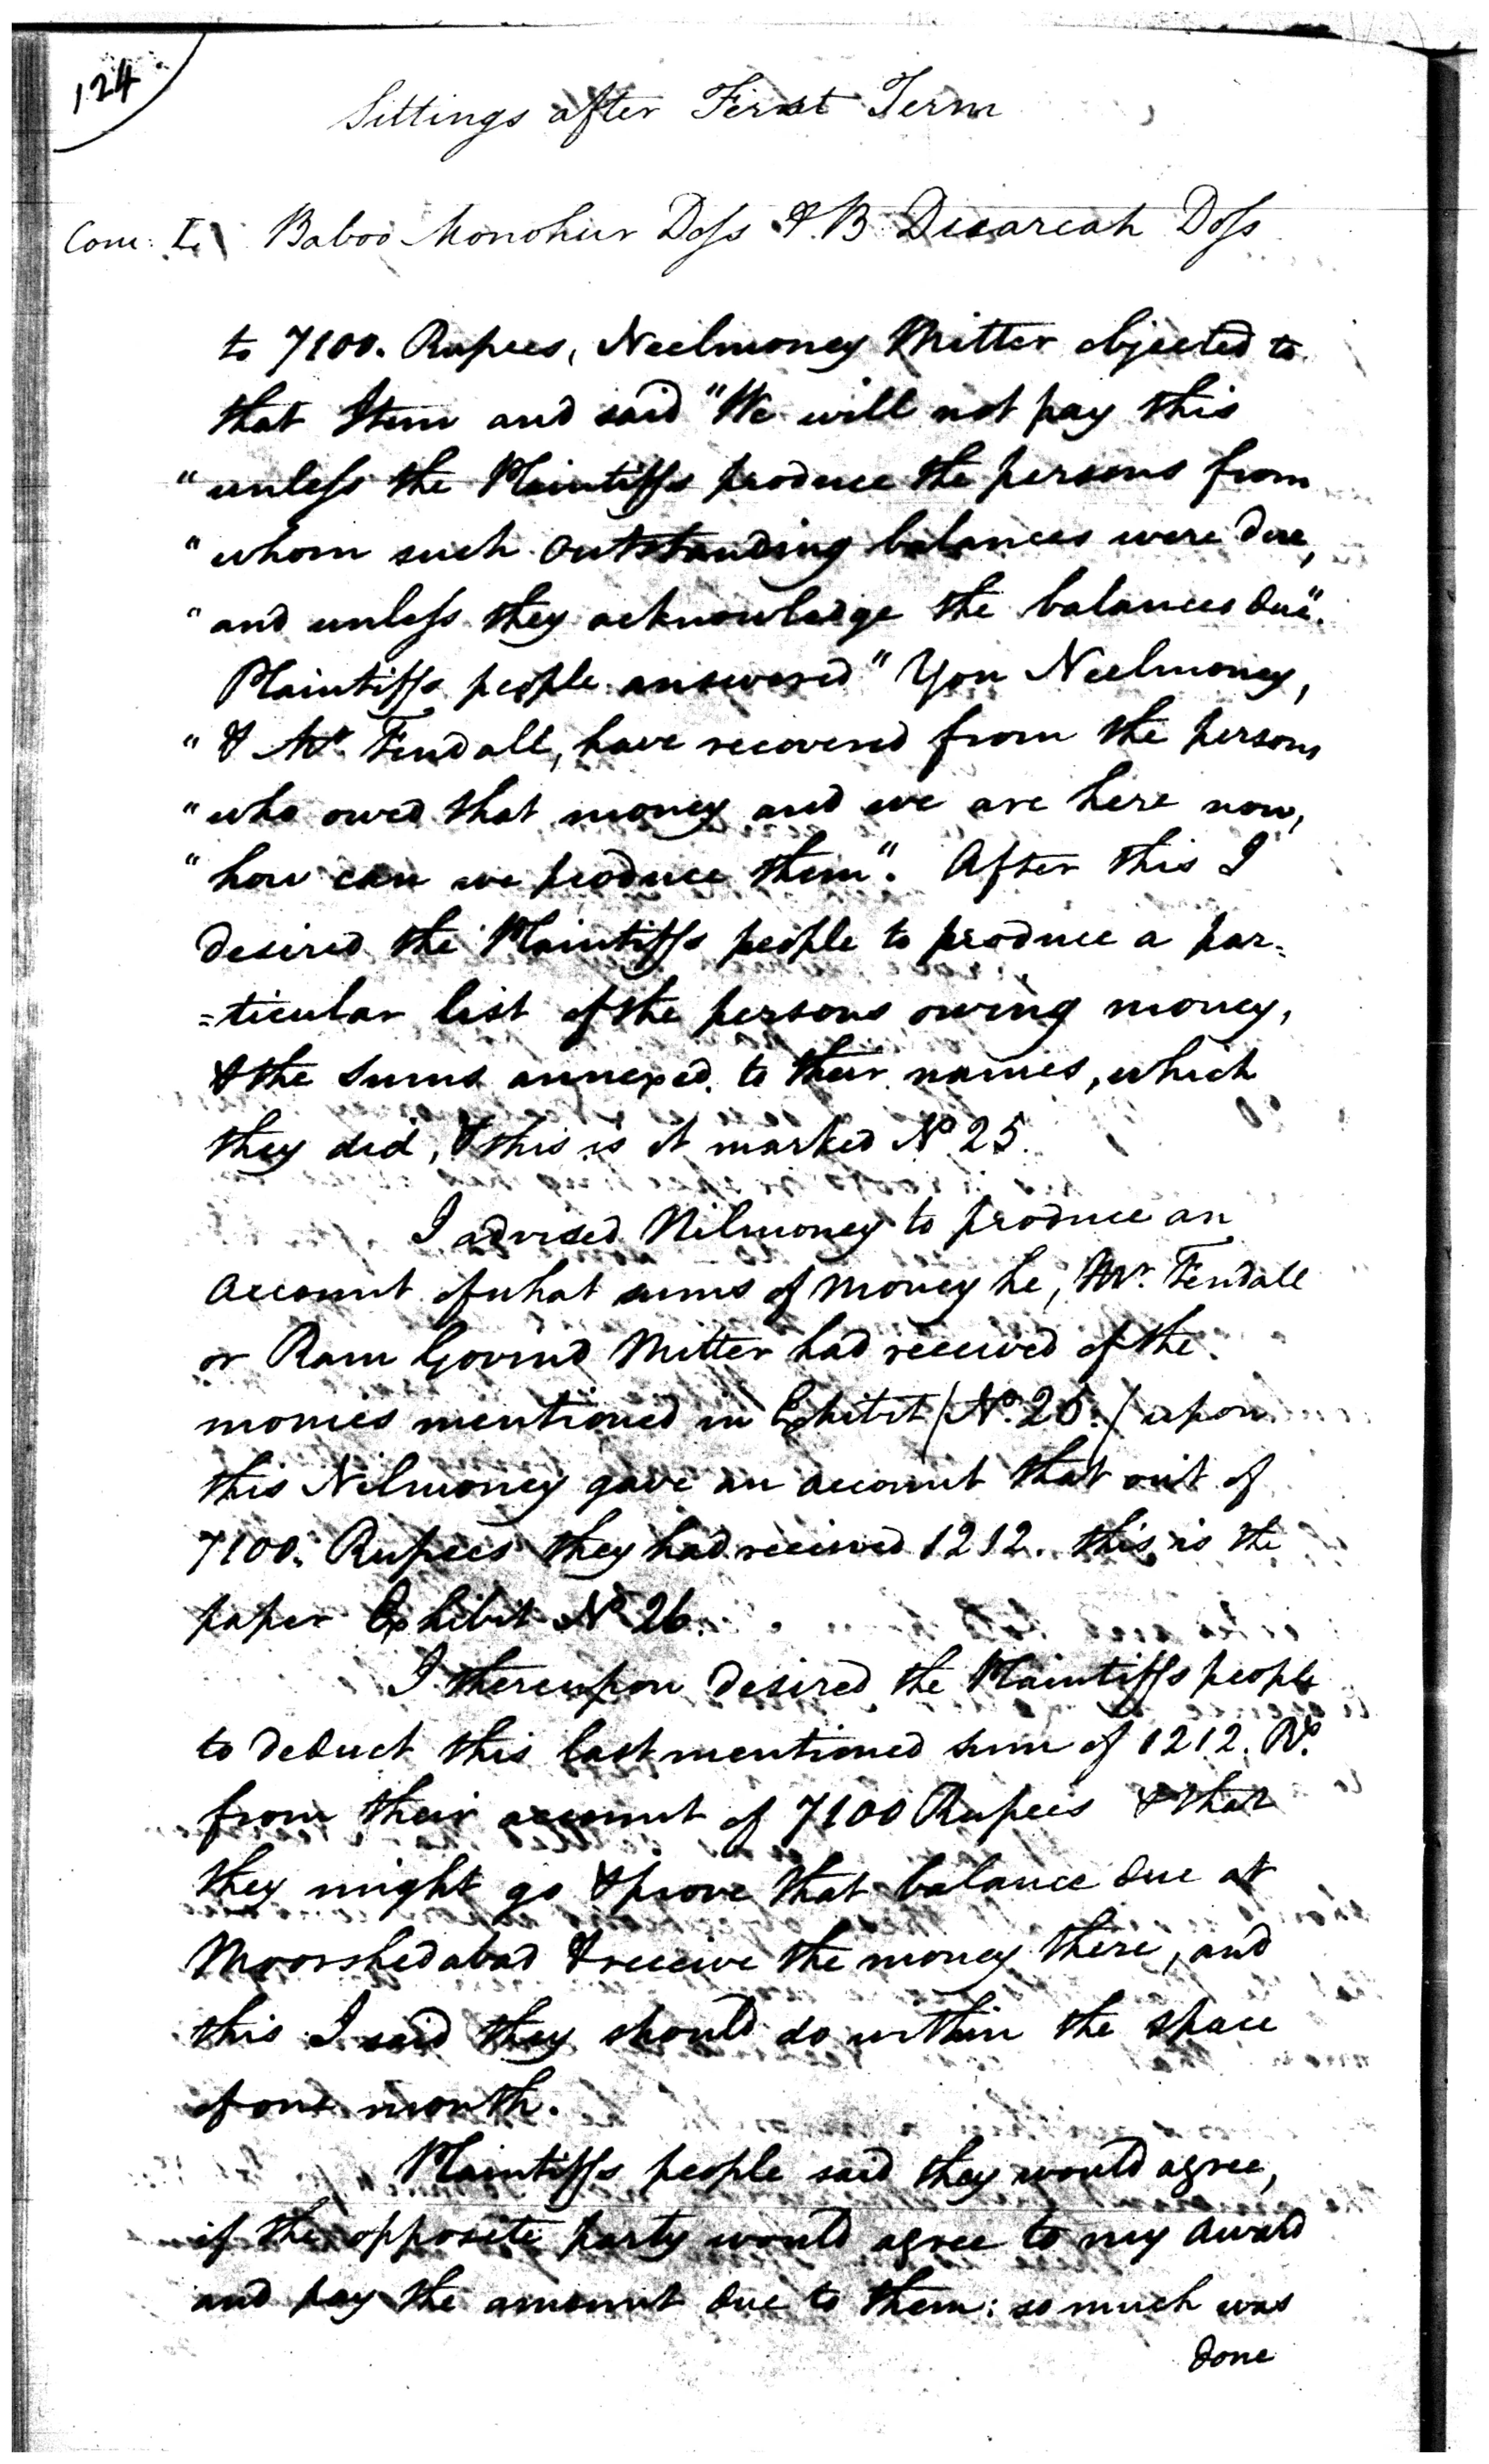 124
Sittings after First Term
Com: L. Baboo Monohur Doss & B Dwarcah Doss
to 7100. Rupees, Neelmoney Mitter objected to
that Item and said "We will not pay this
" unless the Plaintiffs produce the persons from
" whom such outstanding balances were due,
" and unless they acknowledge the balances due".
Plaintiffs people answered "You Neelmoney,
" & Mr. Fendall, have recovered from the persons
" who owed that money and we are here now,
" how can we produce them". After this I
desired the Plaintiffs people to produce a par=
=ticular list of the persons owing money,
& the sums annexed to their names, which
they did, & this is it marked No 25.
I advised Nilmoney to produce an
account of what sums of money he, Mr. Fendall
or Ram Govind Mitter had received of the
monies mentioned in Exhibit (No. 25.) upon
this Nilmoney gave an account that out of
7100. Rupees they had received 1212. this is the
paper Exhibit No 26.
I thereupon desired the Plaintiffs people
to deduct this last mentioned sum of 1212. Rs.
from their account of 7100 Rupees & that
they might go & prove that balance due at
Moorshedabad & receive the money there, and
this I said they should do within the space
of one month.
Plaintiffs people said they would agree,
if the opposite party would agree to my award
and pay the amount due to them: so much was
done